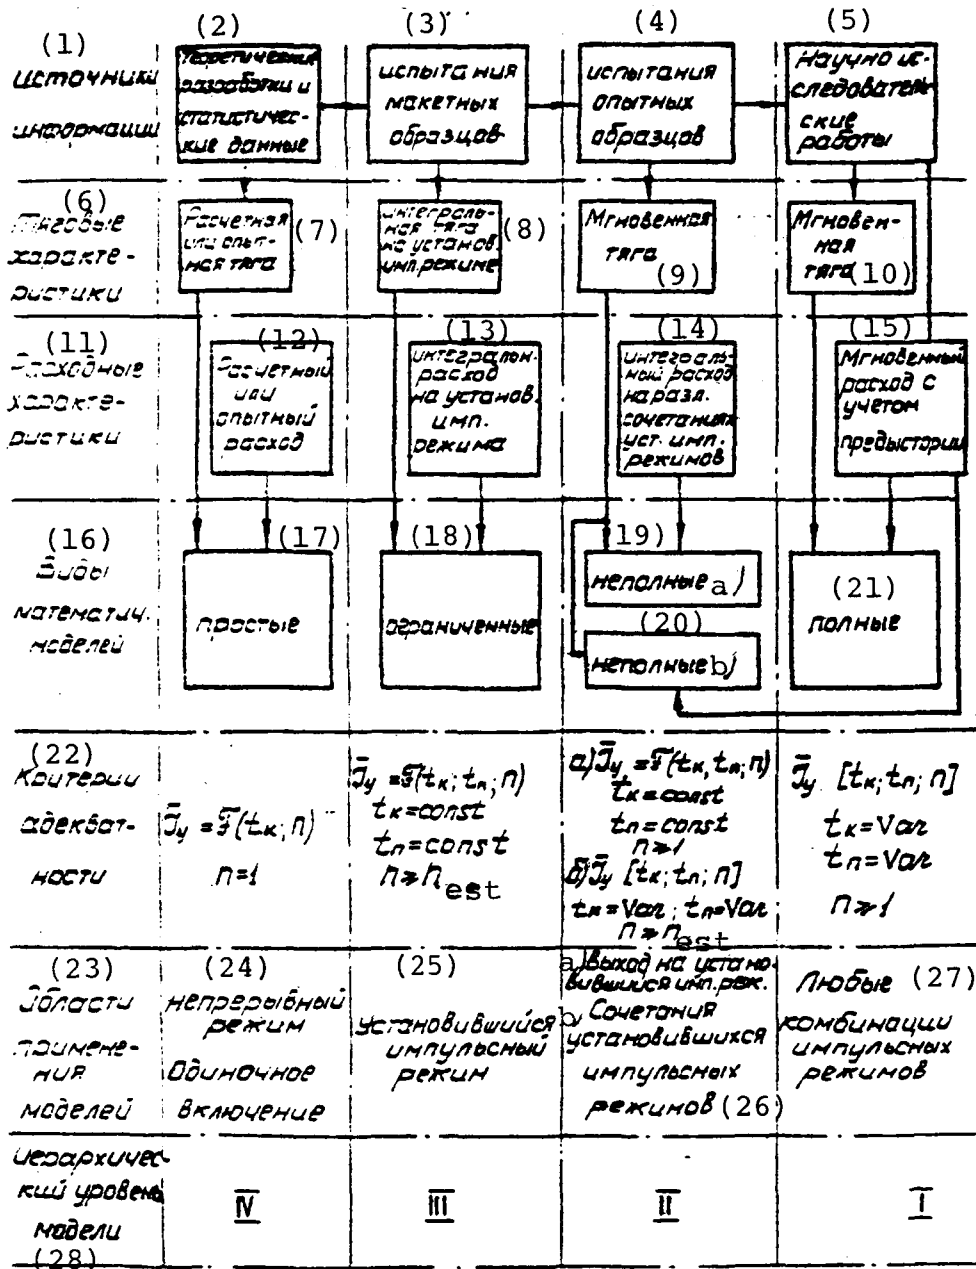 (1)
источники
информации
(2)
Теоретические
разработки и
статистичес-
кие данные
(3)
испытания
макетных
образцов
(4)
испытания
опытных
образцов
(5)
Научно ис-
следователь-
ские
работы
(6)
Тяговые
характе-
ристики
Расчетная
или опыт-
ная тяга
(7)
интеграль-
ная тяга
на установ.
имп. режиме
(8)
Мгновенная
тяга
(9)
Мгновен-
ная
тяга (10)
(11)
Расходные
характе-
ристики
(12)
Расчетный
или
опытный
расход
(13)
интегральн.
расход
на установ.
имп.
режима
(14)
интеграль-
ный расход
на разл.
сочетаниях
уст. имп.
режимов
(15)
Мгновенный
расход с
учетом
предыстории
(16)
Виды
математич.
моделей
(17)
простые
(18)
ограниченные
(19)
неполные a)
(20)
неполные b)
(21)
полные
(22)
Критерии
адекват-
ности
J̄у = F(tк; n)
n=1
J̄у = F(tк; tп; n)
tк=const
tп=const
n ≥ n est
а) J̄у = F(tк, tп; n)
tк=const
tп=const
n≥1
б) J̄у [tк; tп; n]
tк=Var; tп=Var
n ≥ n est
J̄у [tк; tп; n]
tк=Var
tп=Var
n≥1
(23)
Области
примене-
ния
моделей
(24)
непрерывный
режим
Одиночное
включение
(25)
Установившийся
импульсный
режим
a) Выход на устано-
вившийся имп. реж.
Сочетания
установившихся
импульсных
режимов (26)
Любые (27)
комбинации
импульсных
режимов
иерархичес-
кий уровень
модели
(28)
IV
III
II
I